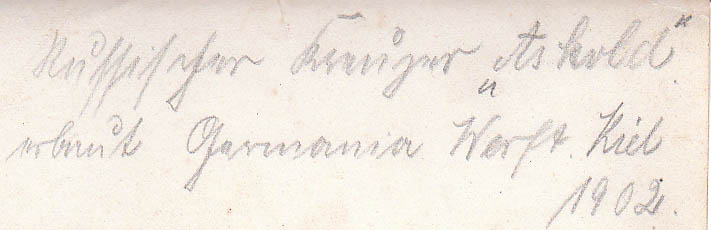 Russischer Kreuzer „Askold“
erbaut Germania Werft. Kiel
1902.